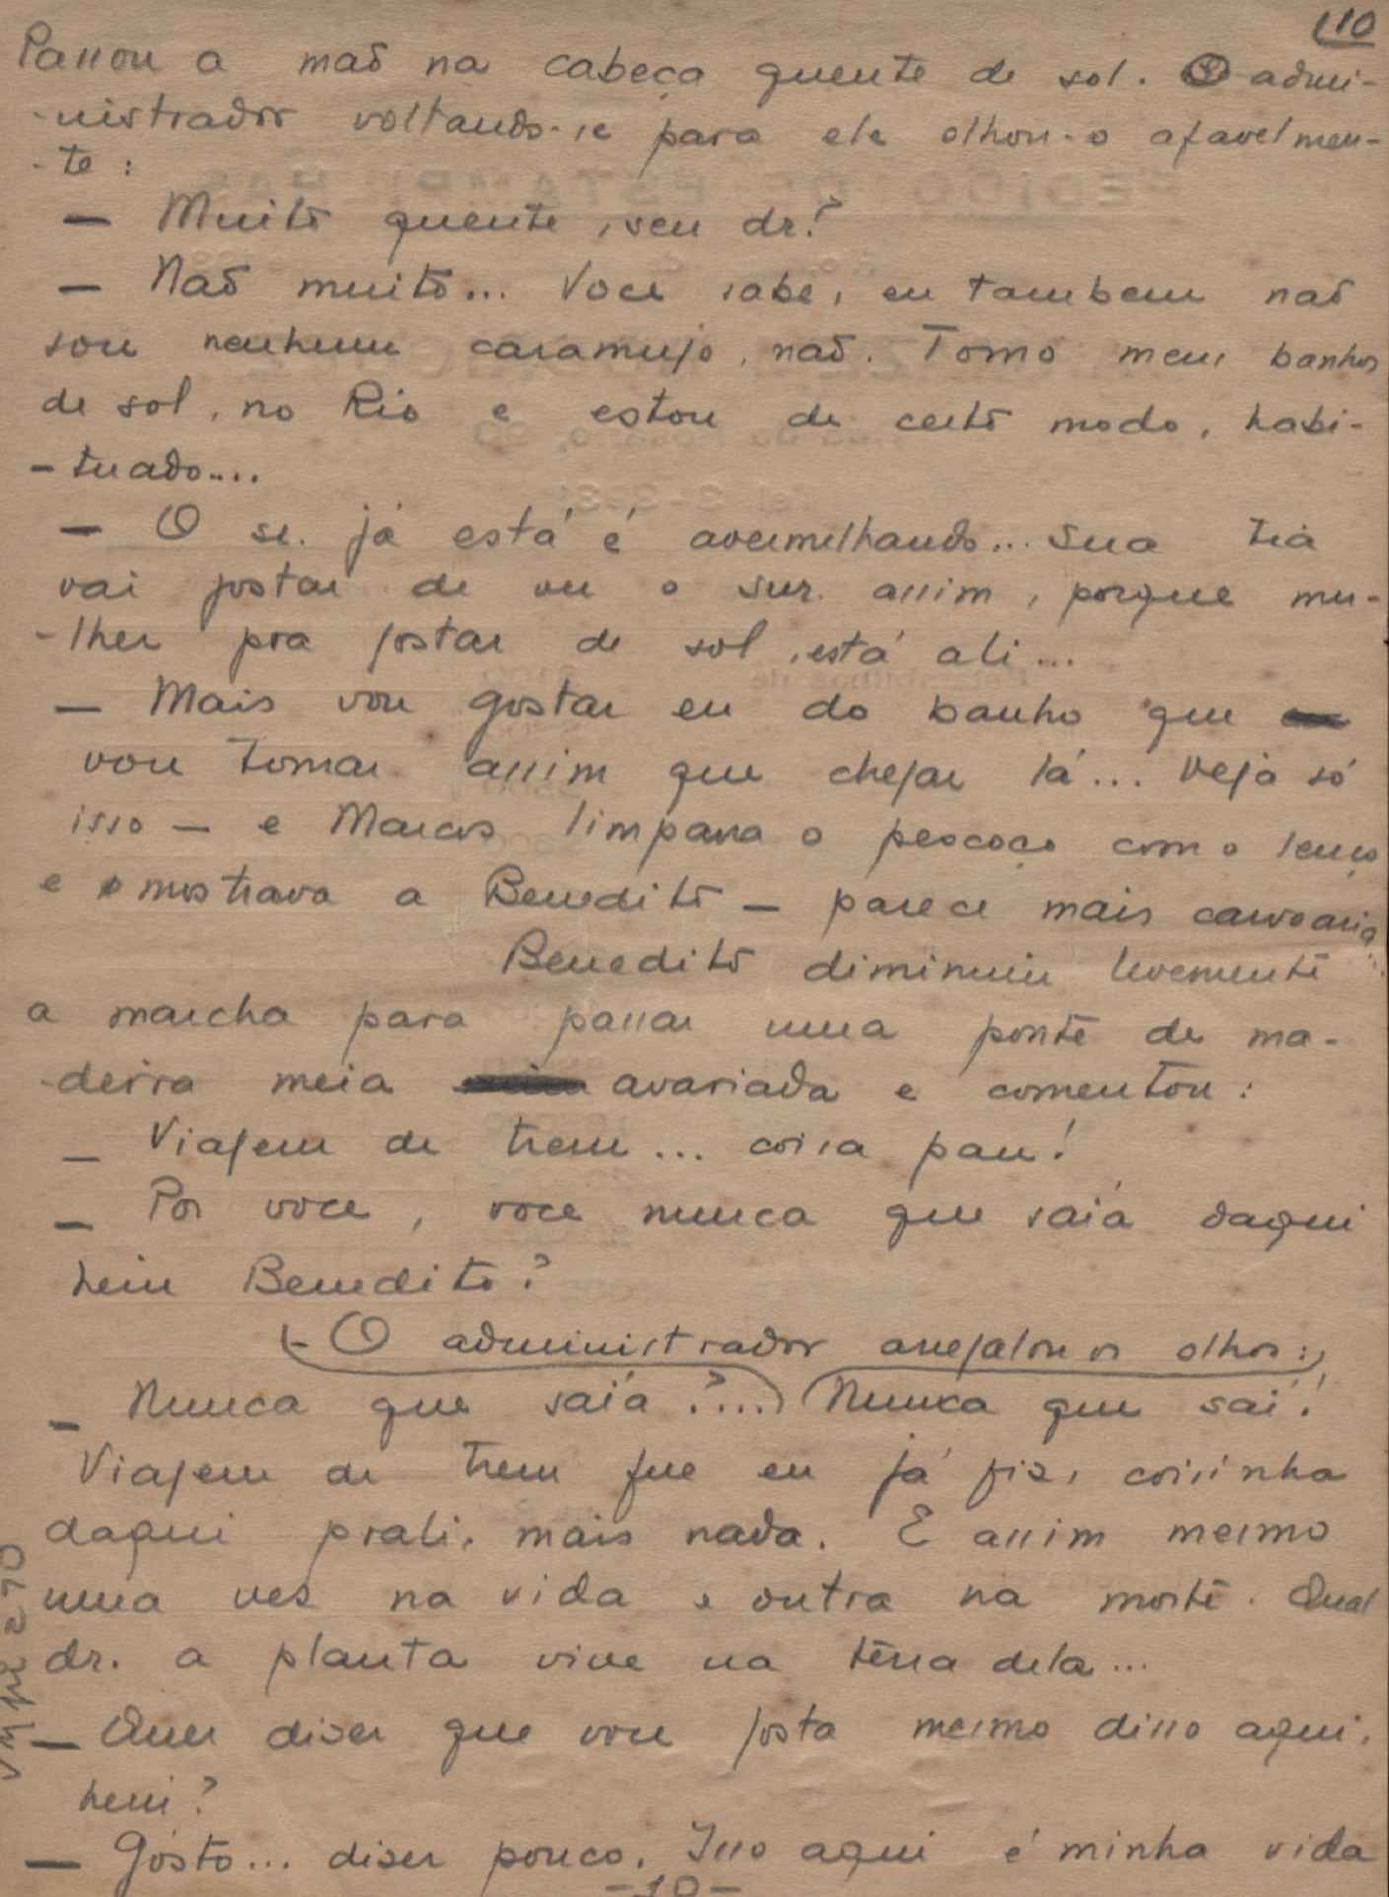 110
Passou a mão na cabeça quente de sol. O admi-
-nistrador voltando-se para ele olhou-o afavelmen-
-te:
— Muito quente, seu dr?
— Não muito... Voce sabe, eu tambem não
sou nenhum caramujo, não. Tomo meus banhos
de sol, no Rio e estou de certo modo, habi-
-tuado....
— O sr. já está é avermelhando... Sua tia
vai gostar de ver o snr. assim, porque mu-
-lher pra gostar de sol, está ali...
— Mais vou gostar eu do banho que
vou tomar assim que chegar lá... Veja só
isso — e Marcos limpava o pescoço com o lenço
e o mostrava a Benedito — parece mais carvoaria
Benedito diminuiu levemente
a marcha para passar uma ponte de ma-
-deira meia avariada e comentou:
— Viagem de trem... coisa pau!
— Por voce, voce nunca que saía daqui
hein Benedito?
- O administrador arregalou os olhos:
— Nunca que saía?.... Nunca que saí!
Viagem de trem que eu já fiz, coisinha
daqui prali, mais nada. E assim mesmo
uma ves na vida e outra na morte. Qual
dr. a planta vive na terra dela...
— Quer diser que voce gosta mesmo disso aqui,
hein?
— Gósto... diser pouco. Isso aqui é minha vida
-10-